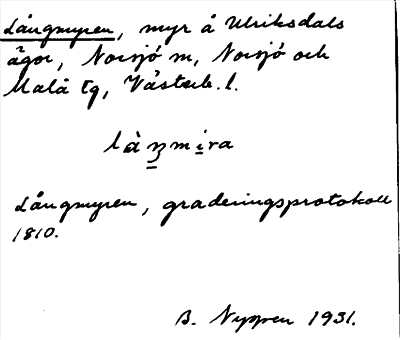 Långmyren, myr å Ulriksdals
ägor, Norsjö sn, Norsjö och
Malå tg, Västerb. l.
Långmyren, graderingsprotokoll
1810.
1931.